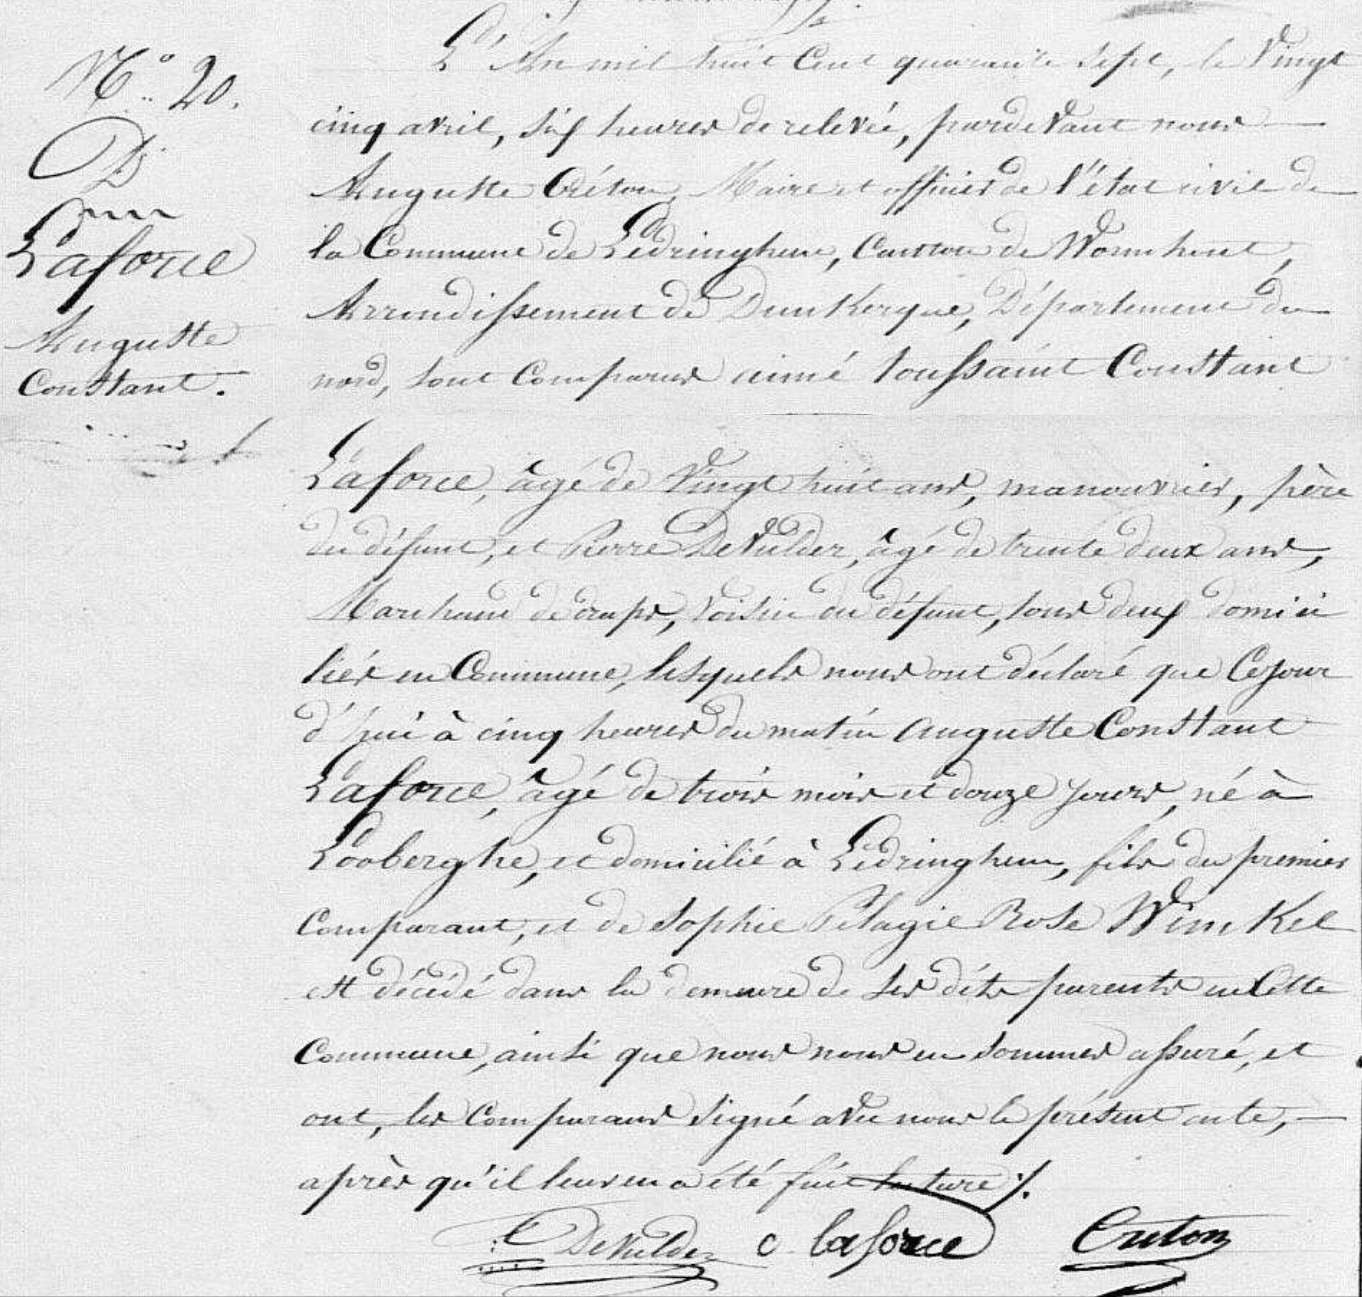 N.° 20.
D.
Laforce
Auguste
Constant.
L'An mil huit Cent quarante sept, le Vingt
cinq avril, six heures de relevée, pardevant nous
Auguste Créton, Maire et officier de l'état civil de
la Commune de Lédringhem, Canton de Wormhout,
Arrondissement de Dunkerque, Département du
nord, sont comparus aimé toussaint Constant
Laforce, âgé de Vingt huit ans, manouvrier, père
du défunt, et Pierre DeVulder, âgé de trente deux ans,
Marchand de draps, voisin du défunt, tous deux domici
liés en Commune, lesquels nous ont déclaré que Cejour
d'hui à cinq heures du matin auguste Constant
Laforce, âgé de trois mois et douze jours, né à
Looberghe, et domicilié à Lédringhem, fils du premier
Comparant, et de Sophie Pélagie Rose WinKel
est décédé dans la demeure de ses dits parents en Cette
Commune, ainsi que nous nous en sommes assuré, et
ont, les Comparans signé avec nous le présent acte,
après qu'il leur en a été fait lecture ./.
DeVulder C laforce Creton